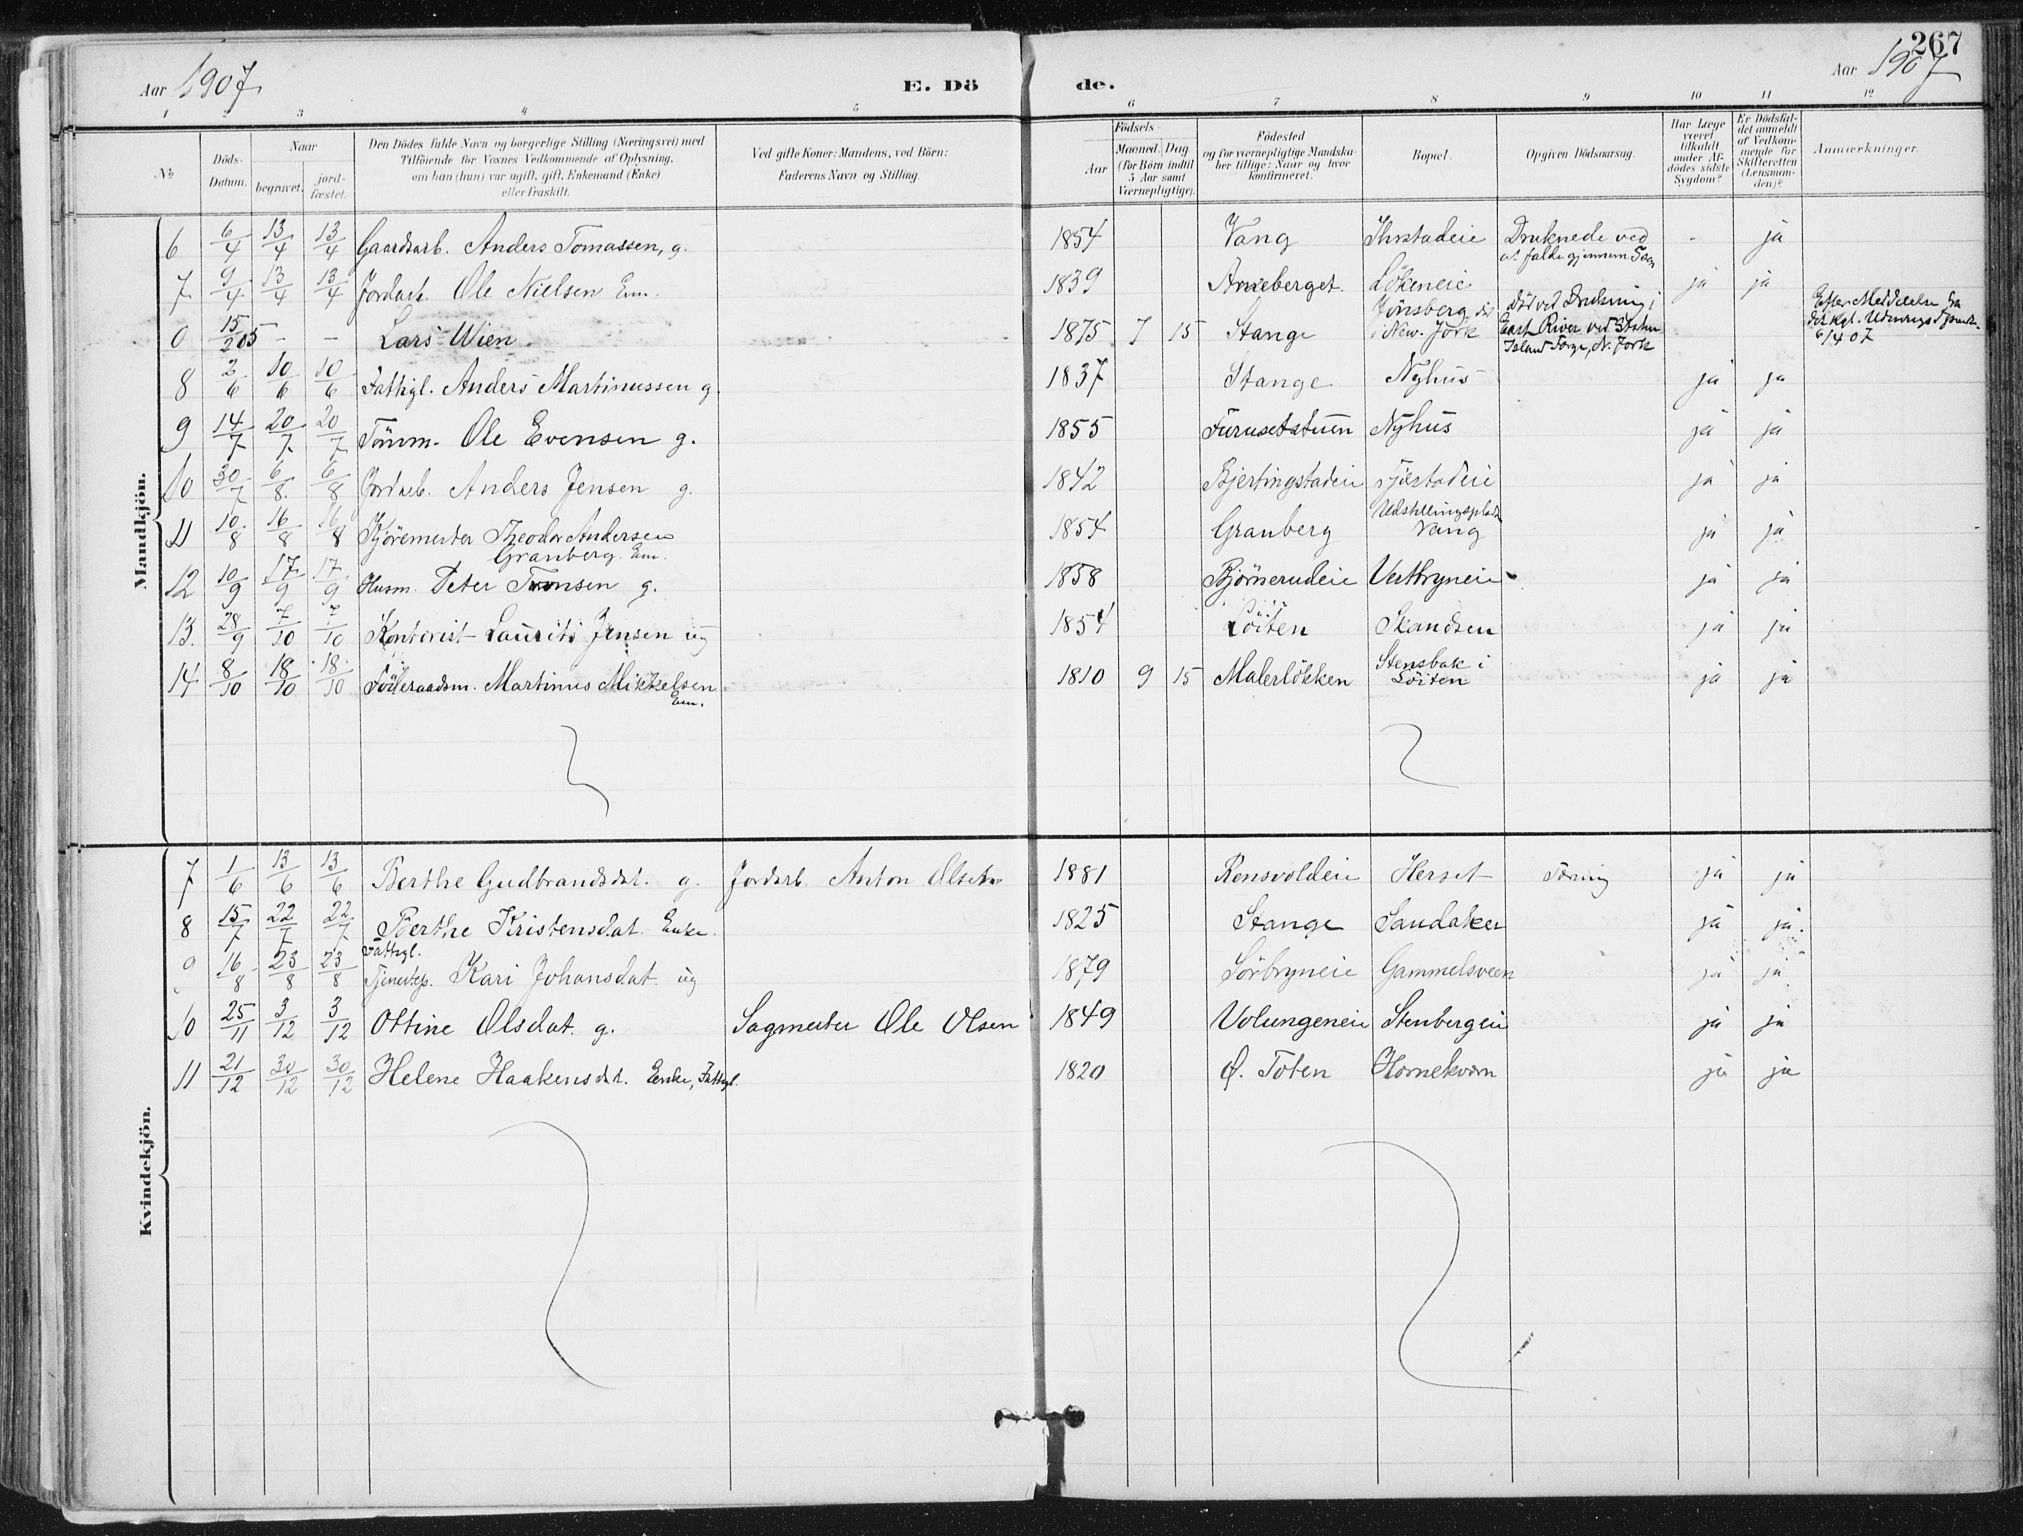 267
Aar 1907
E. Dö de.
Aar 1907
1 2 3 4 5 6 7 8 9 10 11 12
No
Döds-Datum.
Naar
begravet.
jordfæstet.
Den Dödes fulde Navn og borgerlige Stilling (Næringsvei) med
Tilföiende for Voxnes Vedkommende af Oplysning,
om han (hun) var ugift, gift, Enkemand (Enke)
eller fraskilt.
Ved gifte Koner: Mandens, ved Börn:
Faderens Navn og Stilling.
Födsels-
Aar
Maaned. Dag
(for Börn indtil
5 Aar samt
Værnepligtige).
Födested
og for værnepligtige Mandskaber tillige: Naar og hvor
konfirmeret.
Bopæl.
Opgiven Dödsaarsag.
Har Læge
været
tilkaldt
under Afdödes sidste
Sygdom?
Er Dödsfaldet anmeldt
af Vedkommende for
Skifteretten
(Lensmanden)?
Anmærkninger.
Mandkjön.
6 6/4 13/4 13/4 Gaardsarb. Anders Tomassen, g. 1854 Vang Druknede ved at falde gjennem - ja
7 9/4 13/4 13/4 Jordarb. Ole Nielsen Em. 1839 Arneberget Lökeneie ja ja
0 15/2 05 - - Lars Wien 1875 7 15 Stange Jönsberg, i New-Jork död ved Drukning i East River ved Staten Island Færge, N. Jork Efter Meddelelse fra det kgl. 6/4 07
8 2/6 10/6 10/6 Fattigl. Anders Martinussen g. 1837 Stange Nyhus ja ja
9 14/7 20/7 20/7 Tömm. Ole Evensen g. 1855 Furusetstuen Nyhus ja ja
10 30/7 6/8 6/8 Jordarb. Anders Jensen g. 1842 Bjertingstadeie ja ja
11 10/8 16/8 16/8 Kjöremester Theodor Andersen Granberg. Em. 1854 Granberg Udstillingsplads Vang ja ja
12 10/9 17/9 17/9 Husm. Peter g. 1858 Björnerudeie Vestbryneie ja ja
13. 28/9 7/10 7/10 Kontorist Laurits Jensen ug 1854 Löiten Skandsen ja ja
14 8/10 18/10 18/10 Föderaadsm. Martinus Mikkelsen Em. 1810 9 15 Malerlökken Stensbak i Löiten ja ja
Kvindekjön.
7 1/6 13/6 13/6 Berthe Gudbrandsdat. g. Jordarb. Anton Olsen 1881 Rensvoldeie Herset Tæring ja ja
8 15/7 22/7 22/7 Berthe Kristensdat. Enke. Fattigl. 1825 Stange Sandaker ja ja.
9 16/8 23/8 23/8 Tjenestep. Kari Johansdat. ug 1879 Sörbryneie Gammelsveen ja ja
10 25/11 3/12 3/12 Ottine Olsdat. g. Sagmester Ole Olsen 1849 Volungeneie Stenbergeie ja ja
11 21/12 30/12 30/12 Helene Haakensdat. Enke, Fattigl. 1820 Ø. Toten Hornekværn ja ja